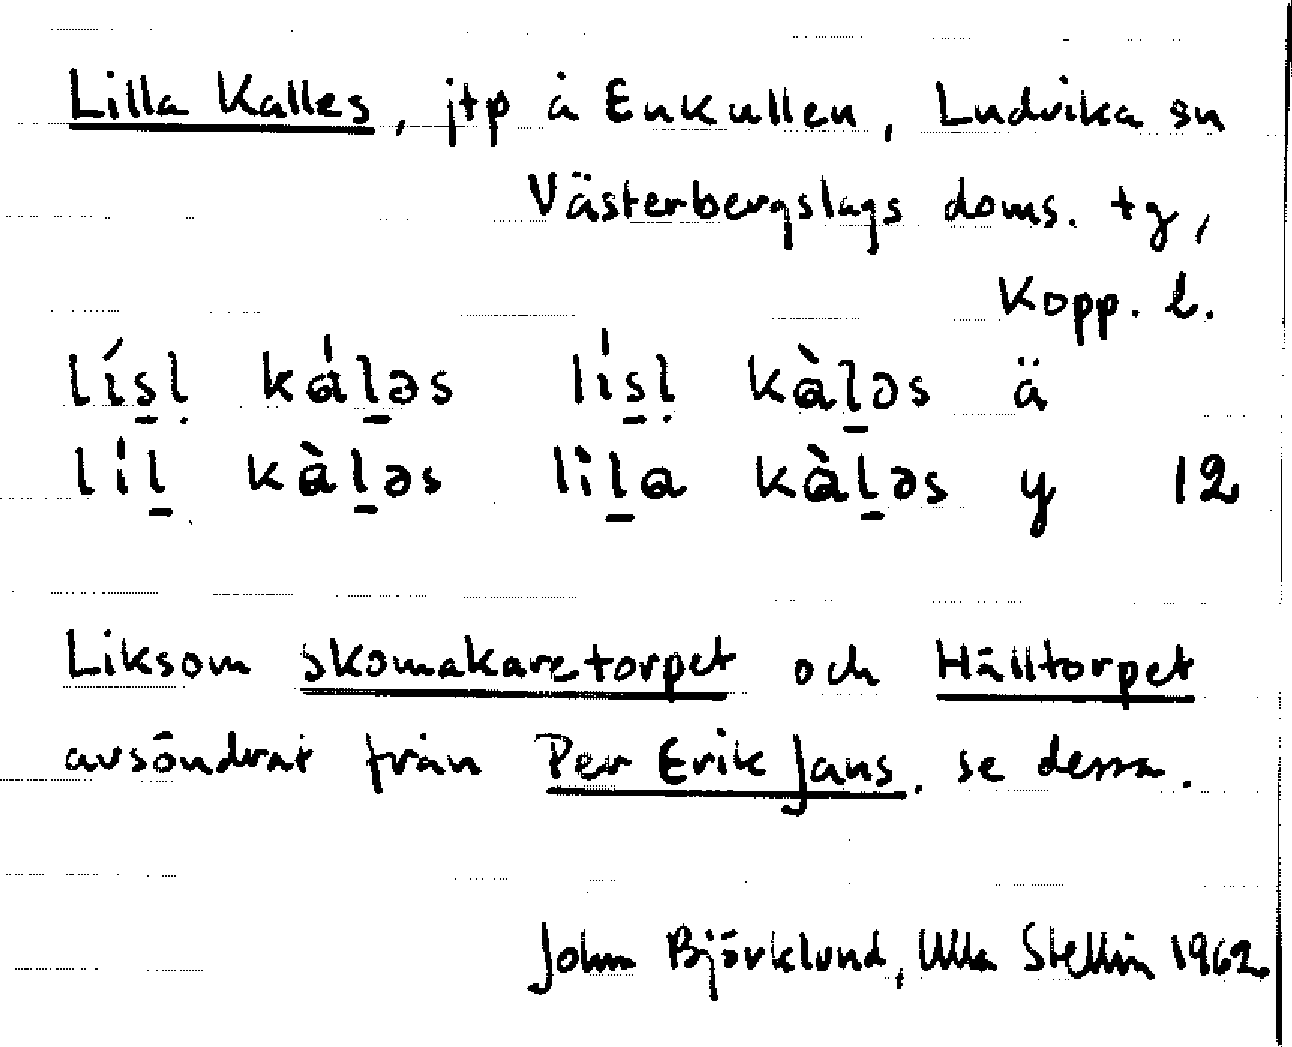 Lilla Kalles, jtp å Enkullen, Ludvika sn
Västerbergslags doms. tg,
Kopp. l.
lís̲ḷ ká̀l̲əs lís̲ḷ kàl̲əs ä
líl̲ kàl̲əs lìl̲a kàl̲əs y 12
Liksom Skomakaretorpet och Hälltorpet
avsöndrat från Per Erik Jans, se dessa.
John Björklund, Ulla Stellin 1962